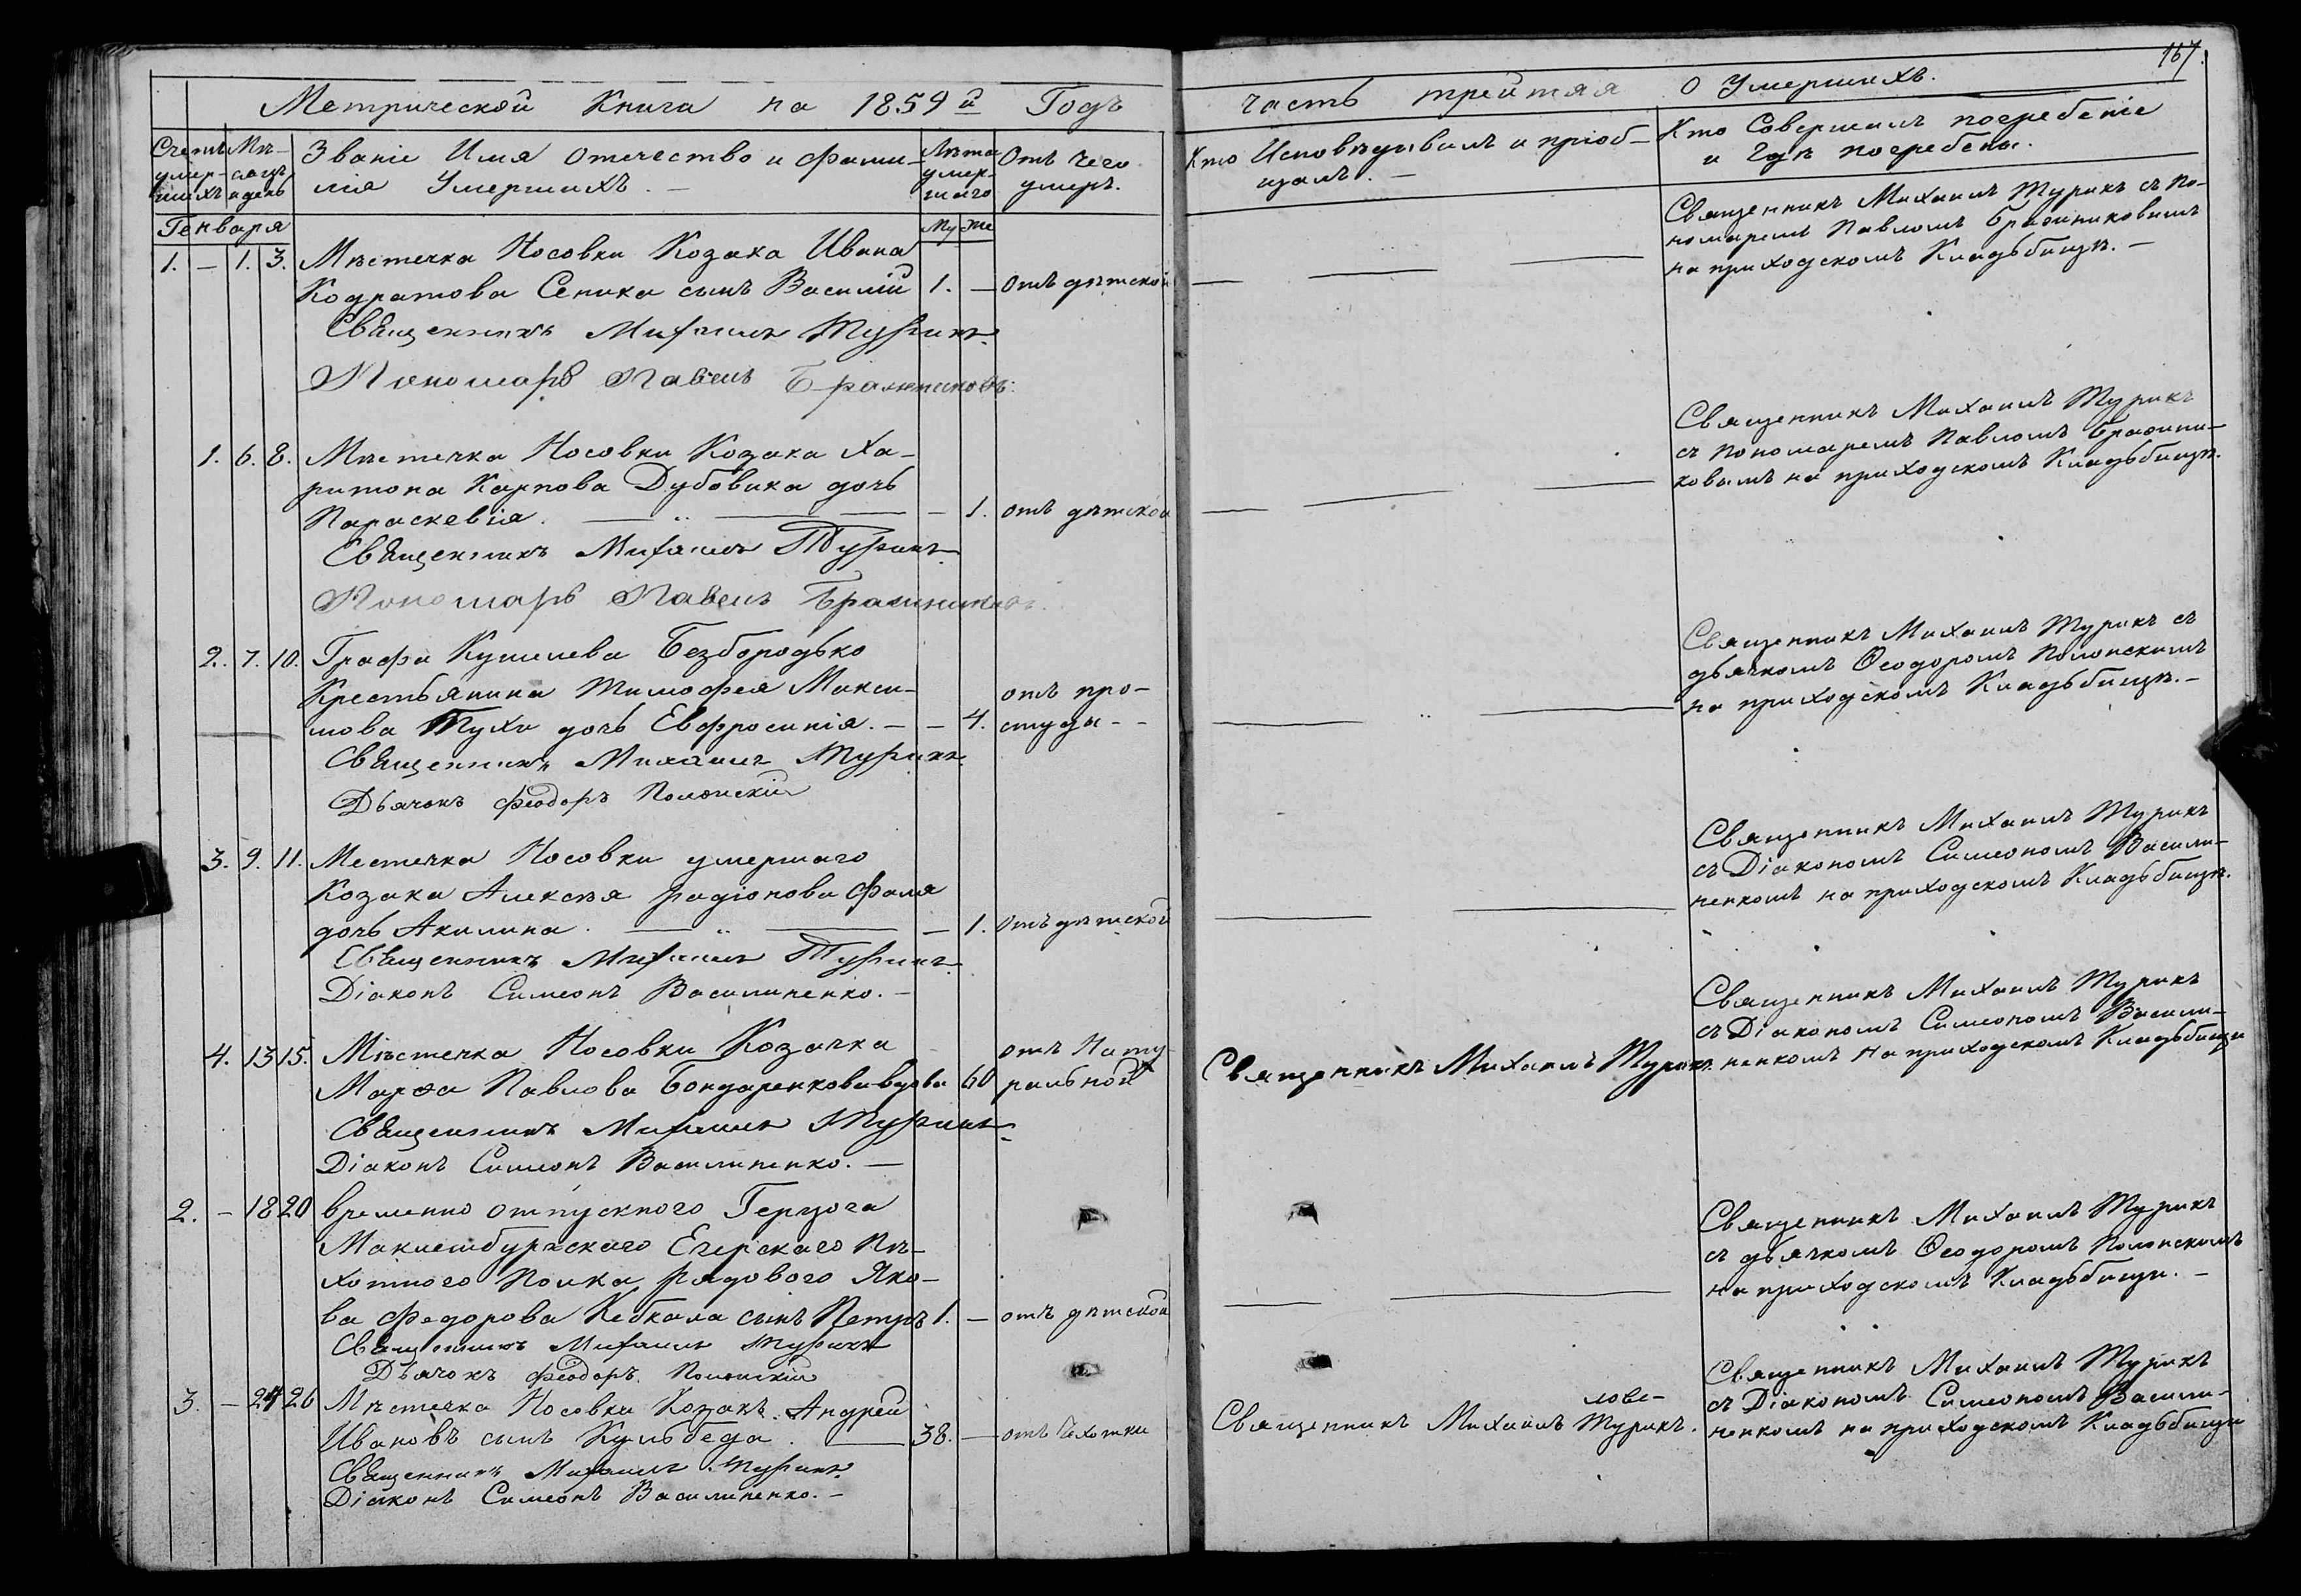 Метрической Книги на 1859й Годъ
часть трейтяя О Умершихъ.
167.
Счетъ умер-шихъ
Мѣ-сяцъ и день
Званіе Имя Отечество и Фами-
лія Умершихъ. —
Лѣта умер-шаго
Отъ чего
умеръ.
Кто Исповѣдывалъ и пріоб-
щалъ. —
Кто Совершалъ погребеніе
и Гдѣ погребены.
Генваря
Му Же
1. — 1. 3. Мѣстечка Носовки Козака Ивана
Кодратова Сепика сынъ Василій 1. — отъ дѣтской
Священникъ Михаилъ Турикъ
Пономарь Павелъ Бражниковъ.
Священникъ Михаилъ Турикъ съ По-
номаремъ Павломъ Бражниковымъ
на приходскомъ Кладьбищѣ. —
1. 6. 8. Мѣстечка Носовки Козака Ха-
ритона Карпова Дубовика дочь
Параскевія. — 1. отъ дѣтской
Священникъ Михаилъ Турикъ
Пономарь Павелъ Бражниковъ.
Священникъ Михаилъ Турикъ
съ Пономаремъ Павломъ Бражни-
ковымъ на приходскомъ Кладьбищѣ.
2. 7. 10. Графа Кушилева Безбородько
Крестьянина Тимофея Макси-
мова Тухи дочь Евфросинія. — — 4. отъ про-
студы - -
Священникъ Михаилъ Турикъ
Дьячокъ Феодоръ Полонскій
Священникъ Михаилъ Турикъ съ
дьячкомъ Ѳеодоромъ Полонскимъ
на приходскомъ Кладьбищѣ. —
3. 9. 11. Местечка Носовки умершаго
Козака Алексѣя радіонова Фаля
дочь Акилина. — 1. отъ дѣтской
Священникъ Михаилъ Турикъ
Діаконъ Симеонъ Василиненко. —
Священникъ Михаилъ Турикъ
съ Діакономъ Симеономъ Васили-
ненкомъ на приходскомъ Кладьбищѣ.
4. 13 15. Мѣстечка Носовки Козачка
Марѳа Павлова Бондаренкова вдова 60
отъ Нату-
ральной
Священникъ Михаилъ Турикъ
Діаконъ Симеонъ Василиненко. —
Священникъ Михаилъ Турикъ.
Священникъ Михаилъ Турикъ
съ Діакономъ Симеономъ Васили-
ненкомъ на приходскомъ Кладьбищи
2. — 18 20 временно отпускного Герцога
Макленбургскаго Егерскаго Пѣ-
хотного Полка рядового Яко-
ва Федорова Кебкала сынъ Петръ 1. — отъ дѣтской
Священникъ Михаилъ Турикъ
Дьячокъ Феодоръ Полонскій
Священникъ Михаилъ Турикъ
съ дьячкомъ Ѳеодоромъ Полонскимъ
на приходскомъ Кладьбищи. —
3. — 24 26 Мѣстечка Носовки Козакъ Андрей
Ивановъ сынъ Кульбеда. — 38. — отъ Чахотки
Священникъ Михаилъ Турикъ
Діаконъ Симеонъ Василиненко. —
Священникъ Михаилъ Турикъ.
Священникъ Михаилъ Турикъ
съ Діакономъ Симеономъ Васили-
ненкомъ на приходскомъ Кладьбищи